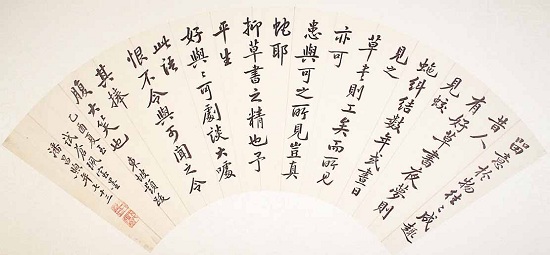 留意於物往々成趣
昔人
有好草書夜夢則
見蛟
蛇糾結數年或晝日
見之
草書則工矣而所見
亦可
患與可之所見豈真
蛇耶
抑草書之精也予
平生
好與々可劇談大噱
此語
恨不令與可聞之令
其捧
腹大笑也 東坡題跋
乙酉夏試蒼佩室墨
潘昌煦年七十三